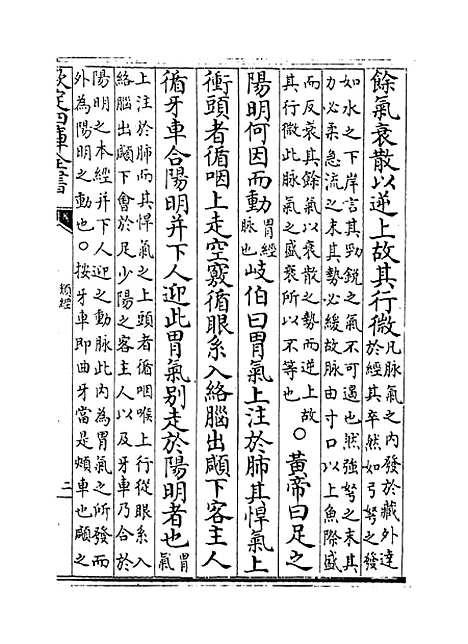 餘氣衰散以逆上故其行微凡脉氣之内發於藏外達
於經其卒然如弓弩之發
如水之下岸言其勁銳之氣不可遏也然強弩之末其
力必柔急流之末其勢必緩故脉由寸口以上魚際盛
而反衰其餘氣以衰散之勢而逆上故
其行微此脉氣之盛衰所以不等也
○黃帝曰足之
陽明何因而動胃經
脉也
岐伯曰胃氣上注於肺其悍氣上
衝頭者循咽上走空竅循眼系入絡腦出顑下客主人
循牙車合陽明并下人迎此胃氣別走於陽明者也胃
氣
上注於肺而其悍氣之上頭者循咽喉上行從眼系入
絡腦出顑下會於足少陽之客主人以及牙車乃合於
陽明之本經并下人迎之動脉此内為胃氣之所發而
外為陽明之動也○按牙車即曲牙當是頰車也顑之
欽定四庫全書
類經
二